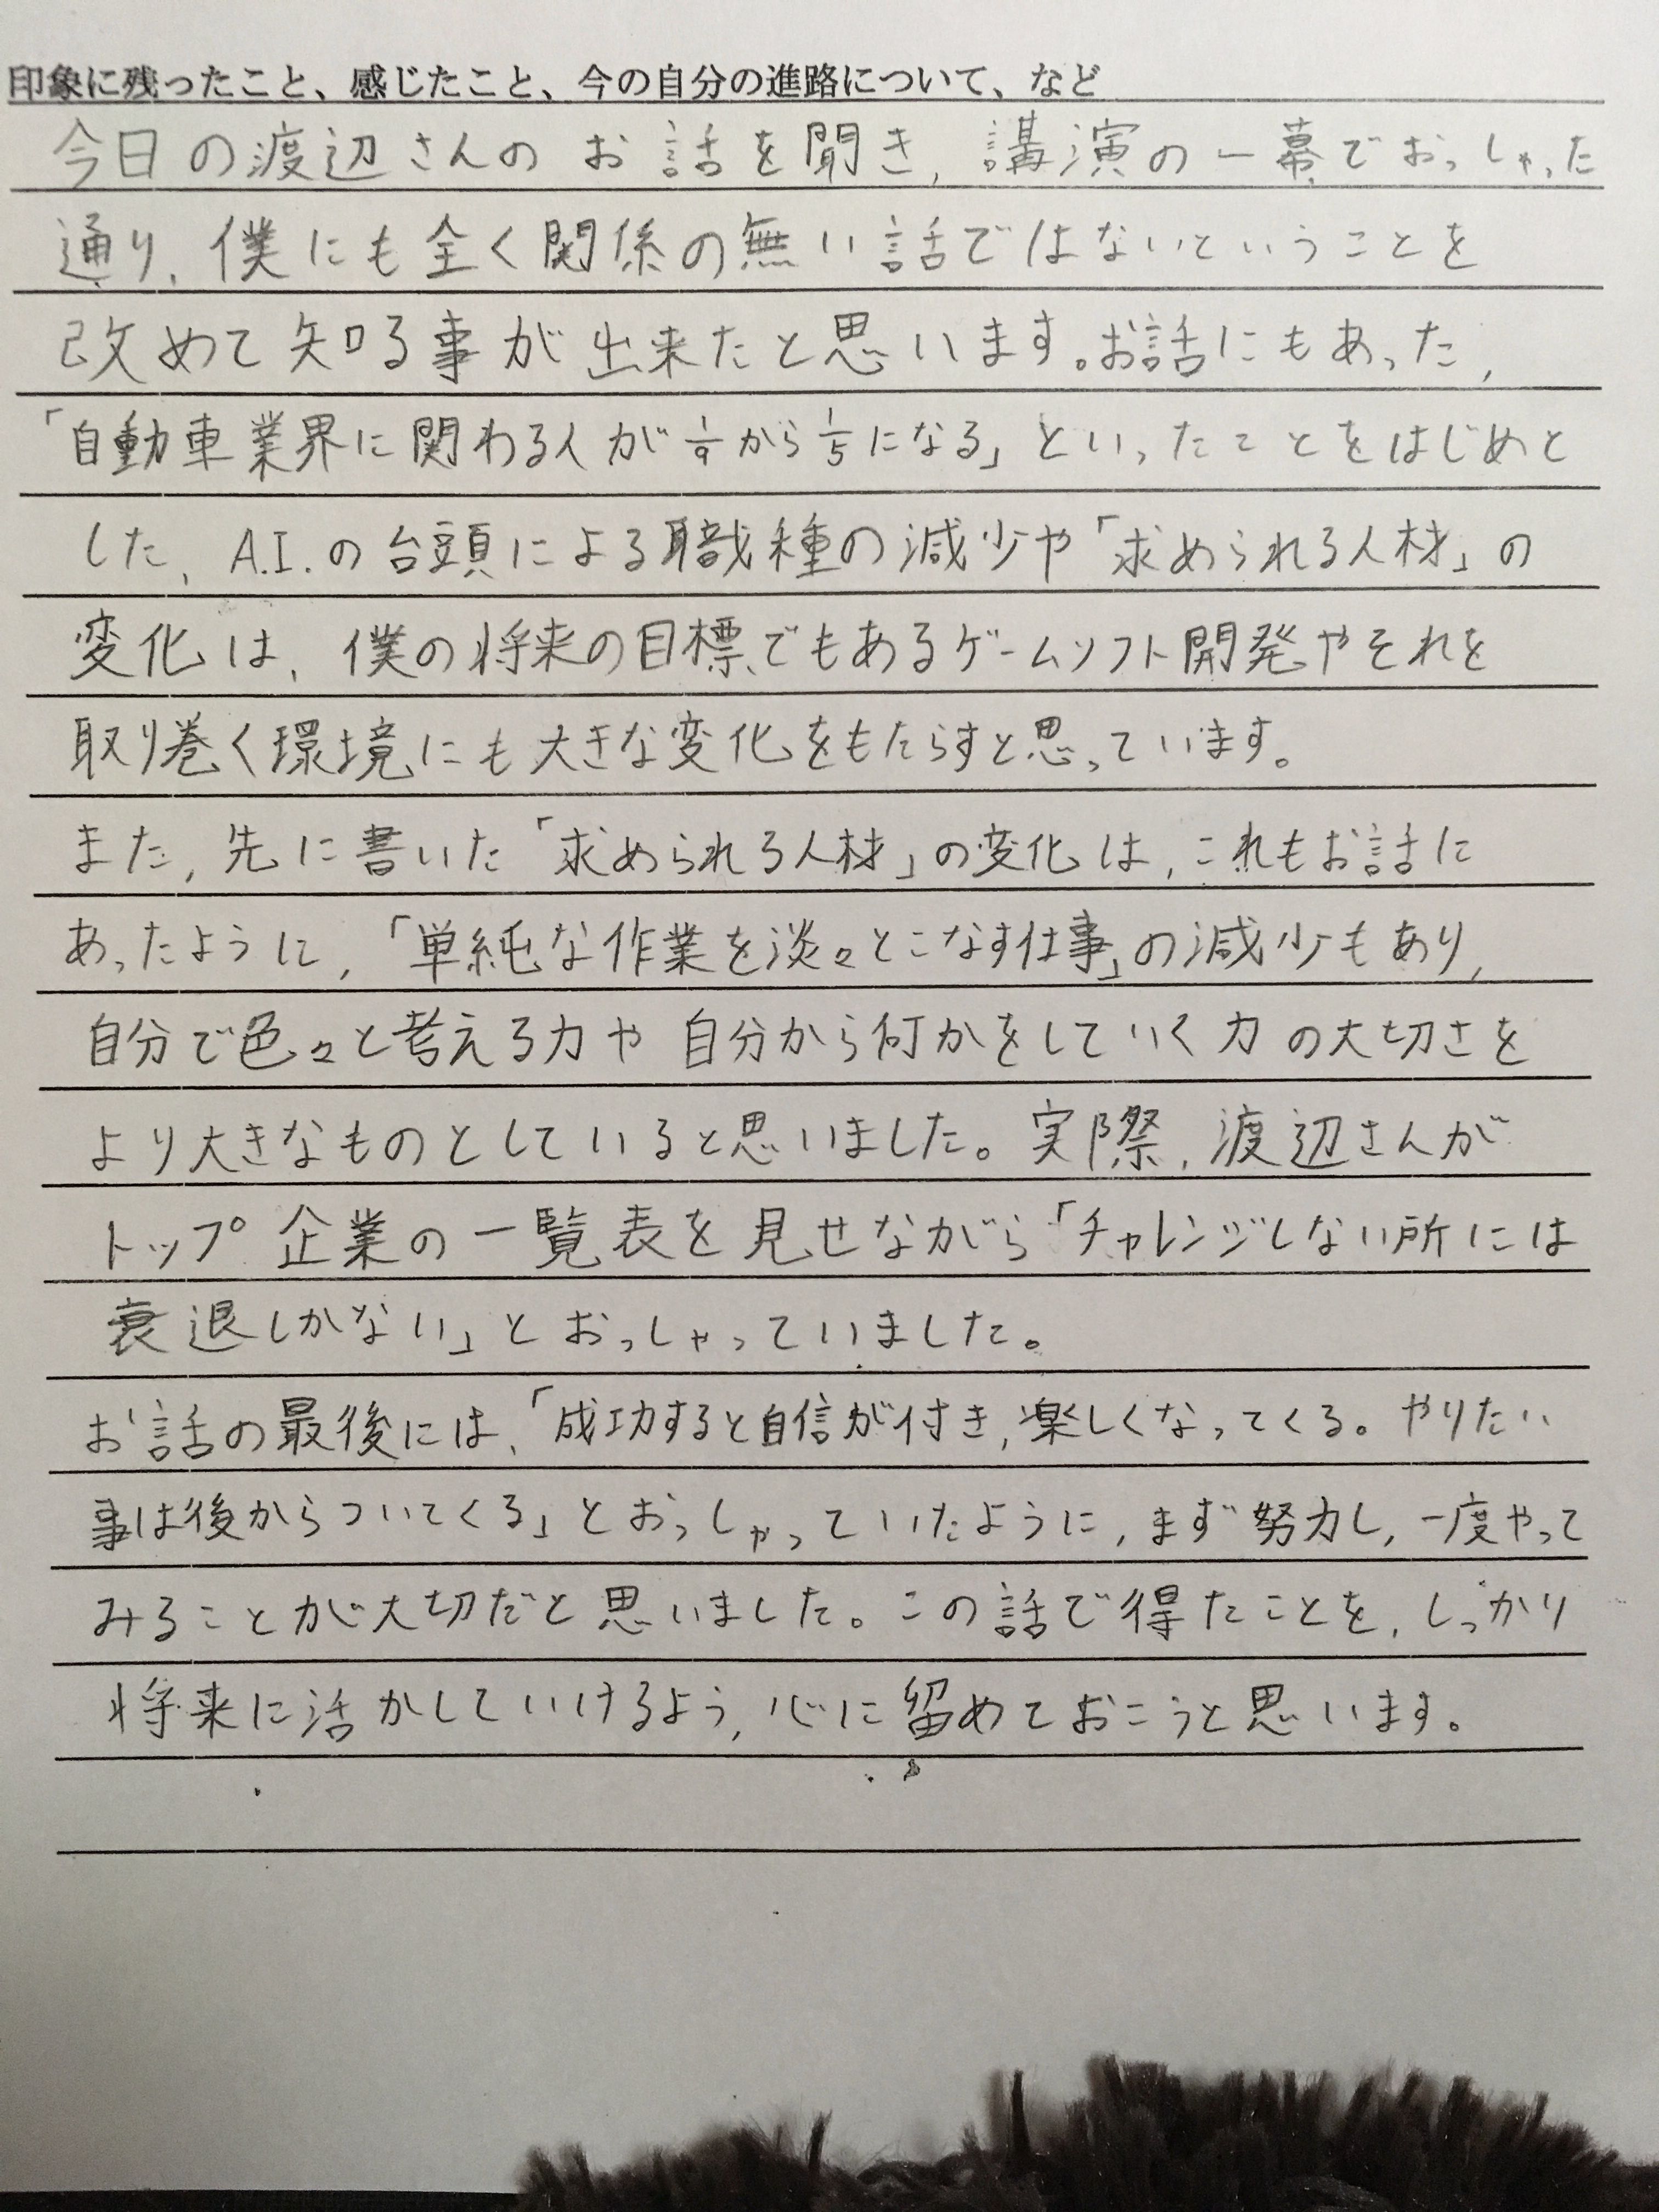 印象に残ったこと、感じたこと、今の自分の進路について、など
今日の渡辺さんのお話を聞き,講演の一幕でおっしゃった
通り,僕にも全く関係の無い話ではないということを
改めて知る事が出来たと思います。お話にもあった,
「自動車業界に関わる人が1/9から1/5になる」といったことをはじめと
した,A.I.の台頭による職種の減少や「求められる人材」の
変化は,僕の将来の目標でもあるゲームソフト開発やそれを
取り巻く環境にも大きな変化をもたらすと思っています。
また,先に書いた「求められる人材」の変化は,これもお話に
あったように,「単純な作業を淡々とこなす仕事」の減少もあり,
自分で色々と考える力や自分から何かをしていく力の大切さを
より大きなものとしていると思いました。実際,渡辺さんが
トップ企業の一覧表を見せながら「チャレンジしない所には
衰退しかない」とおっしゃっていました。
お話の最後には,「成功すると自信が付き,楽しくなってくる。やりたい
事は後からついてくる」とおっしゃっていたように,まず努力し,一度やって
みることが大切だと思いました。この話で得たことを,しっかり
将来に活かしていけるよう,心に留めておこうと思います。